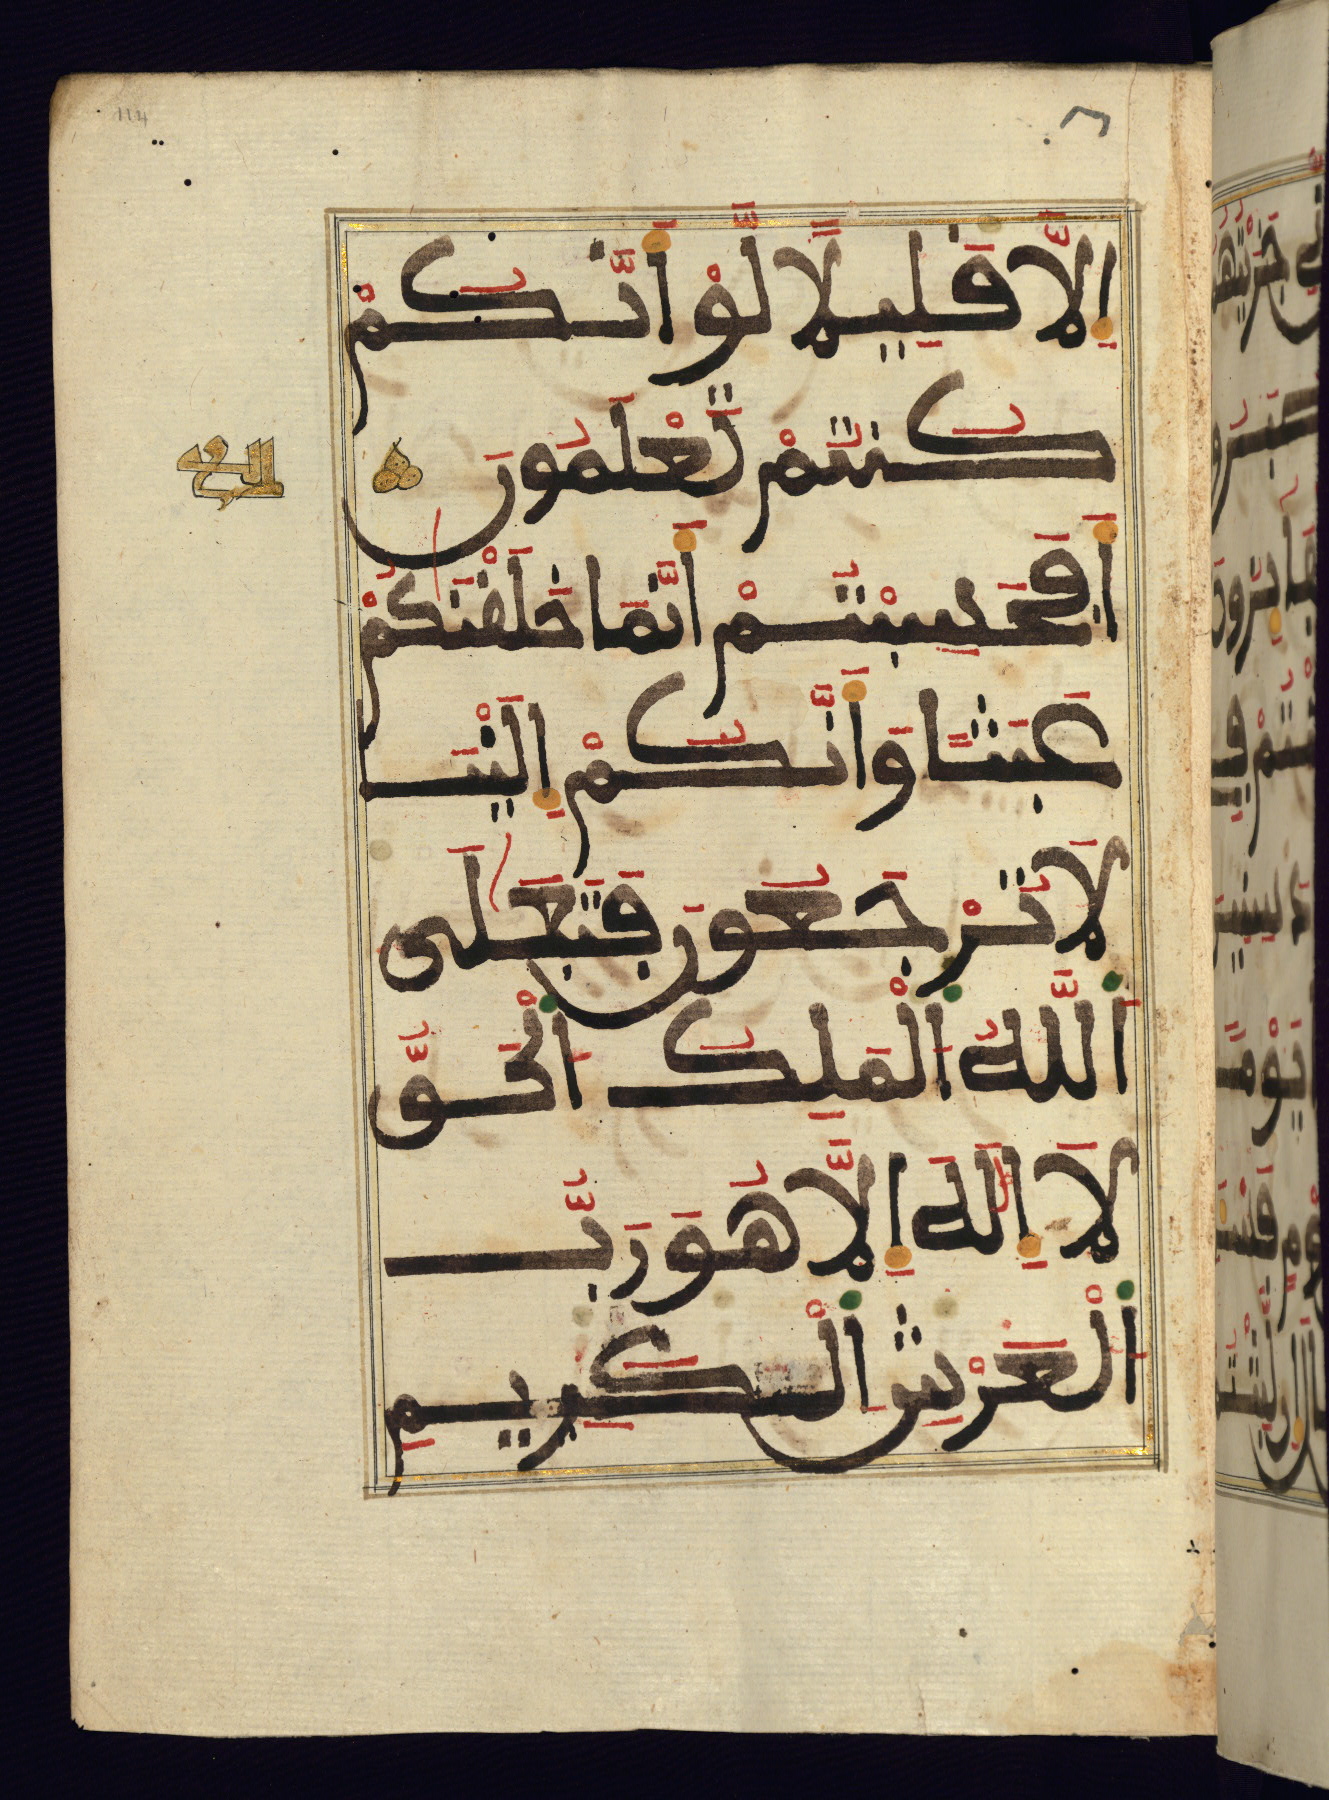 إِلَّا قَلِيلًا لَّوْ أَنَّكُمْ
كُنتُمْ تَعْلَمُونَ
أَفَحَسِبْتُمْ أَنَّمَا خَلَقْنَٰكُمْ
عَبَثًا وَأَنَّكُمْ إِلَيْنَا
لَا تُرْجَعُونَ فَتَعَٰلَى
ٱللَّهُ ٱلْمَلِكُ ٱلْحَقُّ
لَا إِلَٰهَ إِلَّا هُوَ رَبُّ
ٱلْعَرْشِ ٱلْكَرِيمِ
114